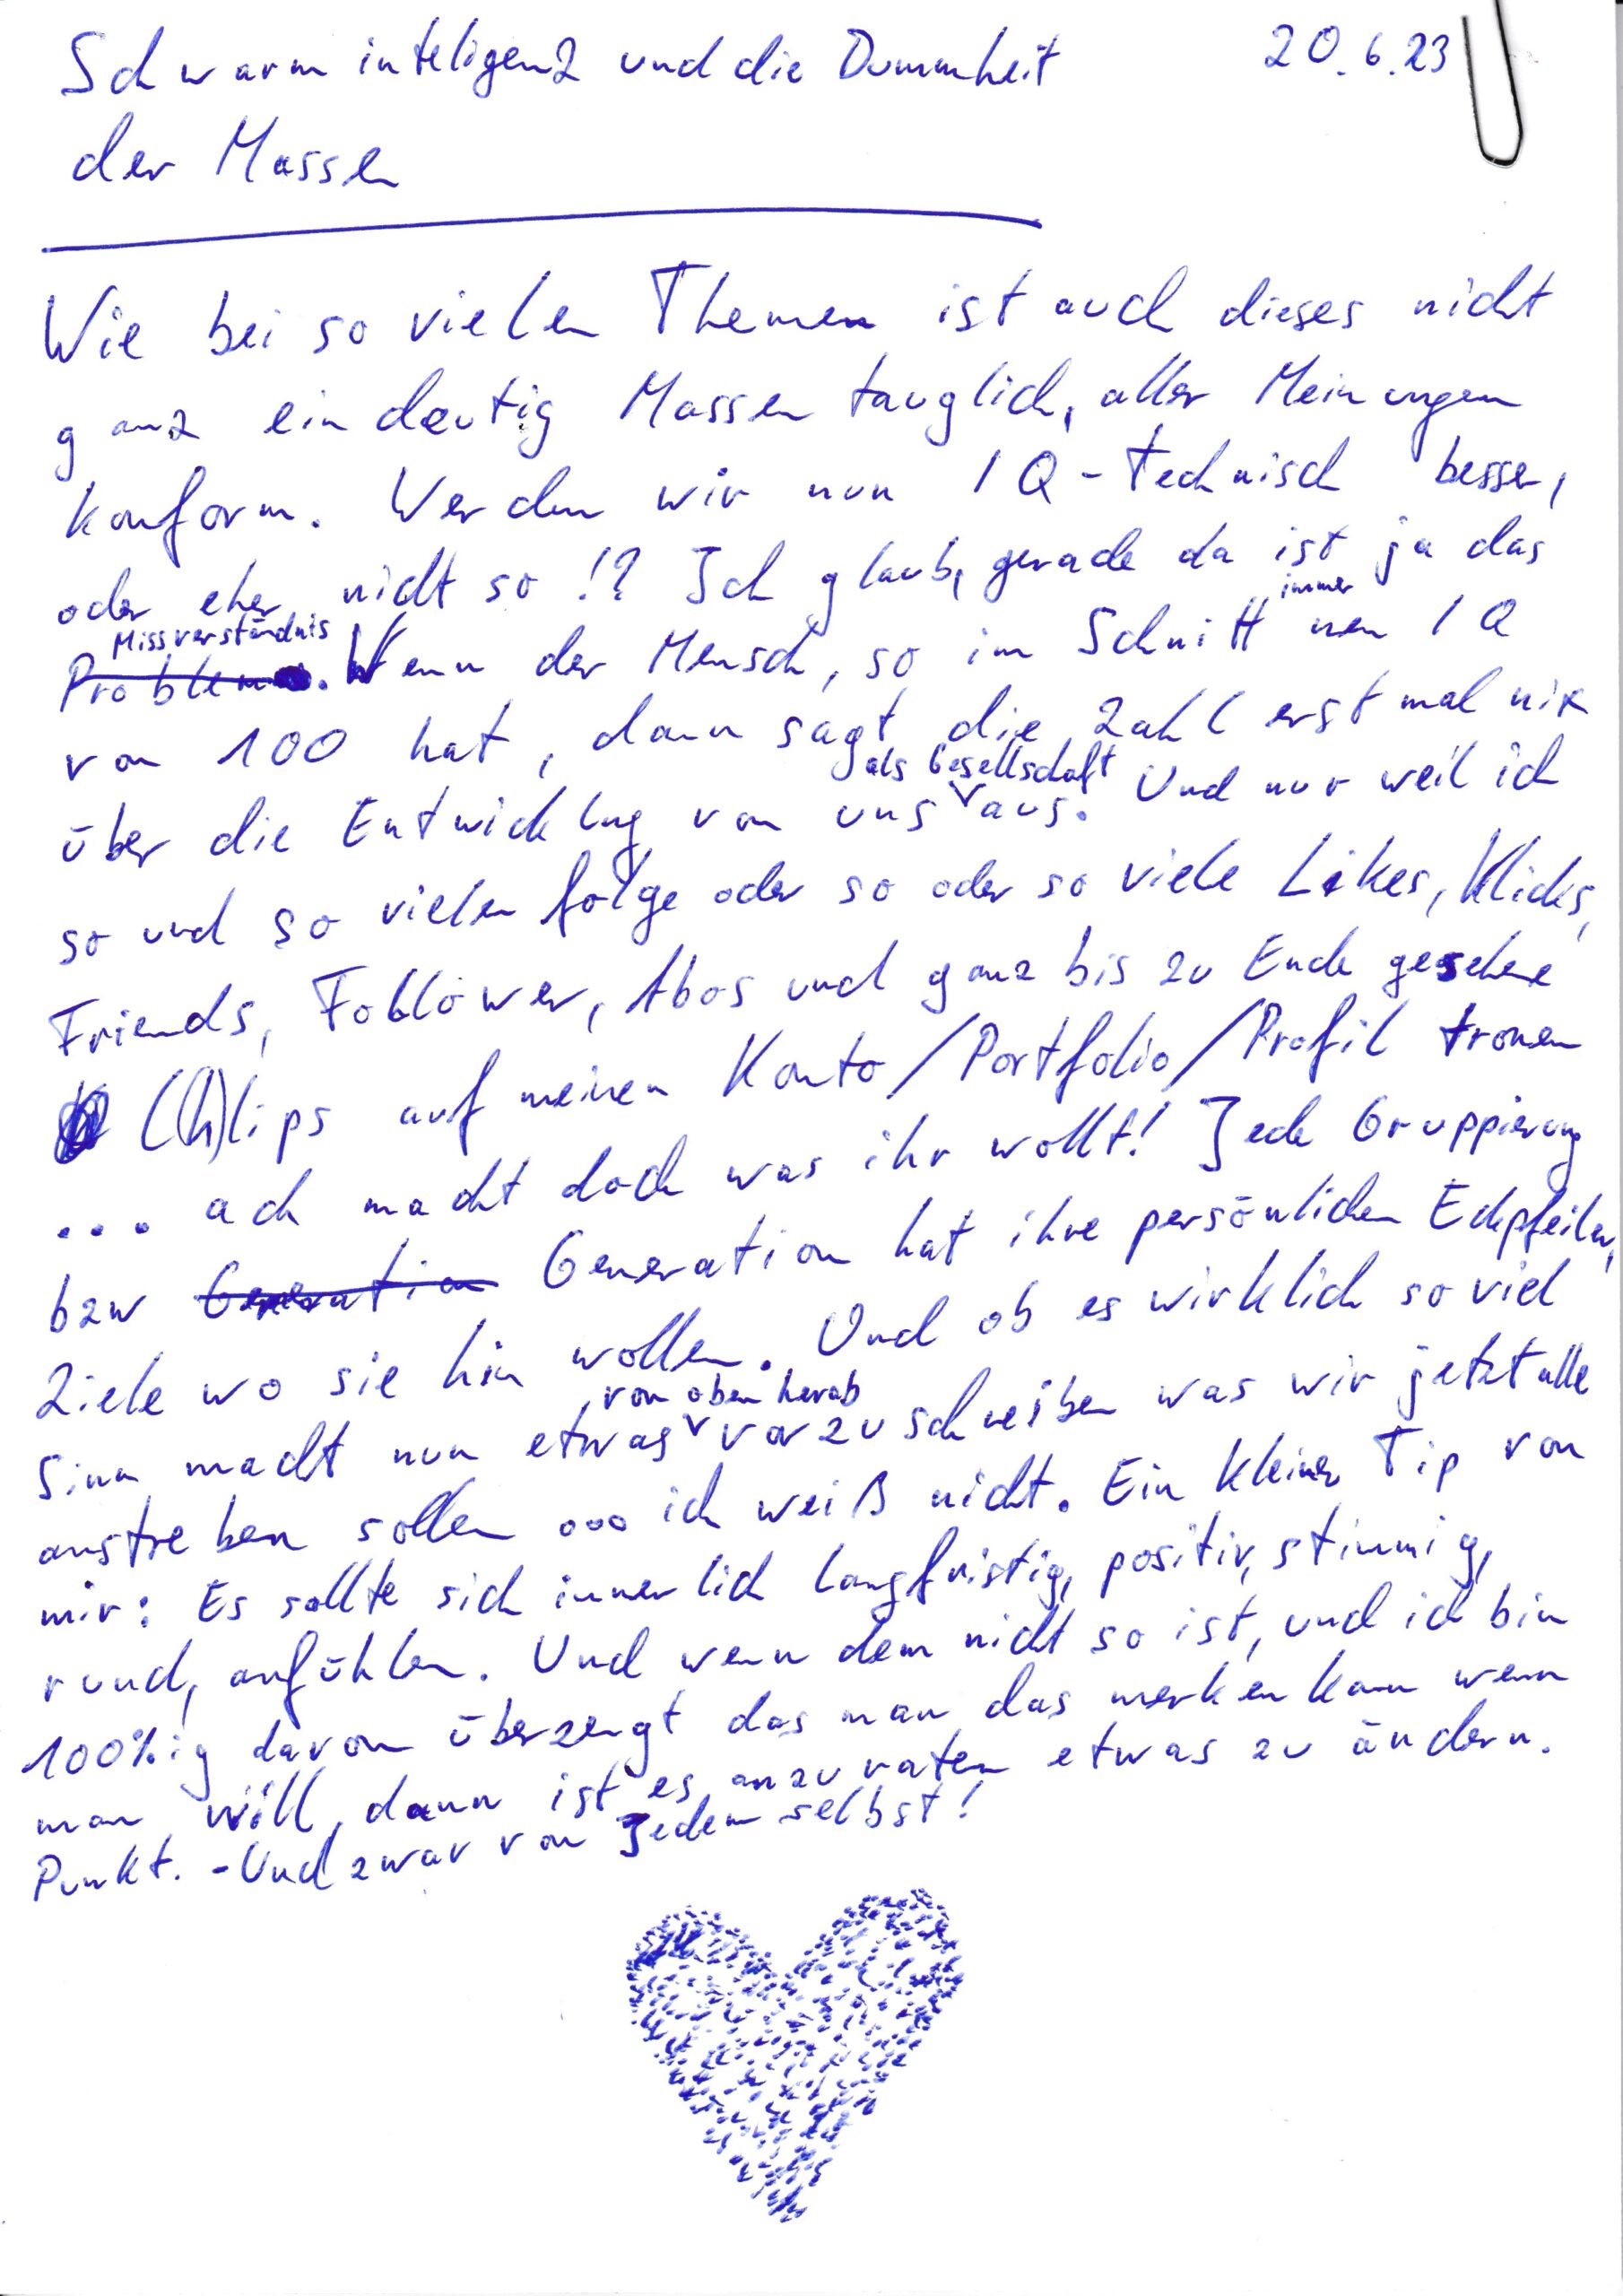 Schwarminteligenz und die Dummheit 20.6.23
der Massen
Wie bei so vielen Themen ist auch dieses nicht
ganz eindeutig Massen tauglich, aller Meinungen
konform. Werden wir nun IQ-technisch besser,
oder eher nicht so !? Ich glaub, gerade da ist ja das
Missverständnis
Problem. Wenn der Mensch, so im Schnitt immer nen IQ
von 100 hat, dann sagt die Zahl erst mal nix
über die Entwicklug von uns als Gesellschaft aus. Und nur weil ich
so und so vielen folge oder so oder so viele Likes, Klicks,
Friends, Follower, Abos und ganz bis zu Ende gesehene
(Ch)lips auf meinen Konto/Portfolio/Profil tronen
... ach macht doch was ihr wollt! Jede Gruppierung
bzw Generation Generation hat ihre persönlichen Eckpfeiler,
Ziele wo sie hin wollen. Und ob es wirklich so viel
Sinn macht nun etwas von oben herab vorzuschreiben was wir jetzt alle
anstreben sollen ... ich weiß nicht. Ein kleiner Tip von
mir: Es sollte sich innerlich langfristig, positiv, stimmig,
rund, anfühlen. Und wenn dem nicht so ist, und ich bin
100%ig davon überzeugt das man das merken kann wenn
man will, dann ist es anzuraten etwas zu ändern.
Punkt. - Und zwar von Jedem selbst!